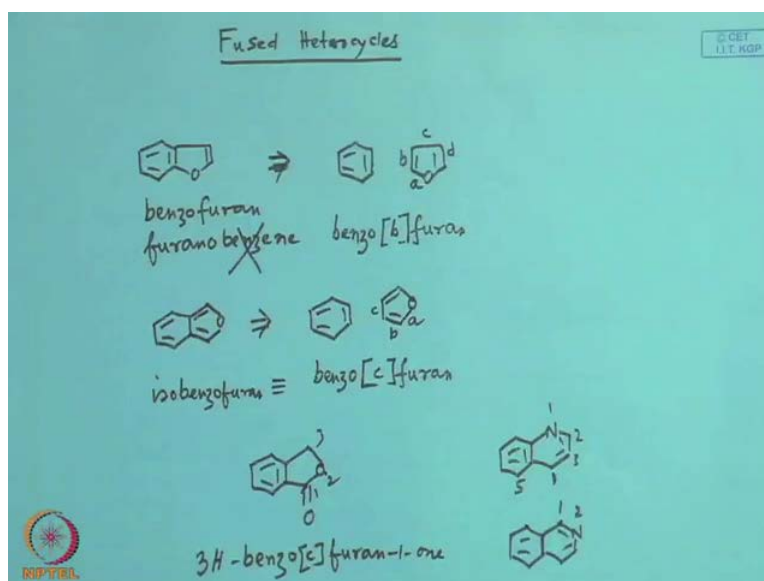 Fused Heterocycles
© CET
I.I.T. KGP
c
b d
O
a
benzofuran
furanobenzene
benzo[b]furan
O
c O
a
b
isobenzofuran ≡ benzo[c]furan
3
O 2
O
3H-benzo[c]furan-1-one
1
N 2
3
5 1
1 2
N
NPTEL